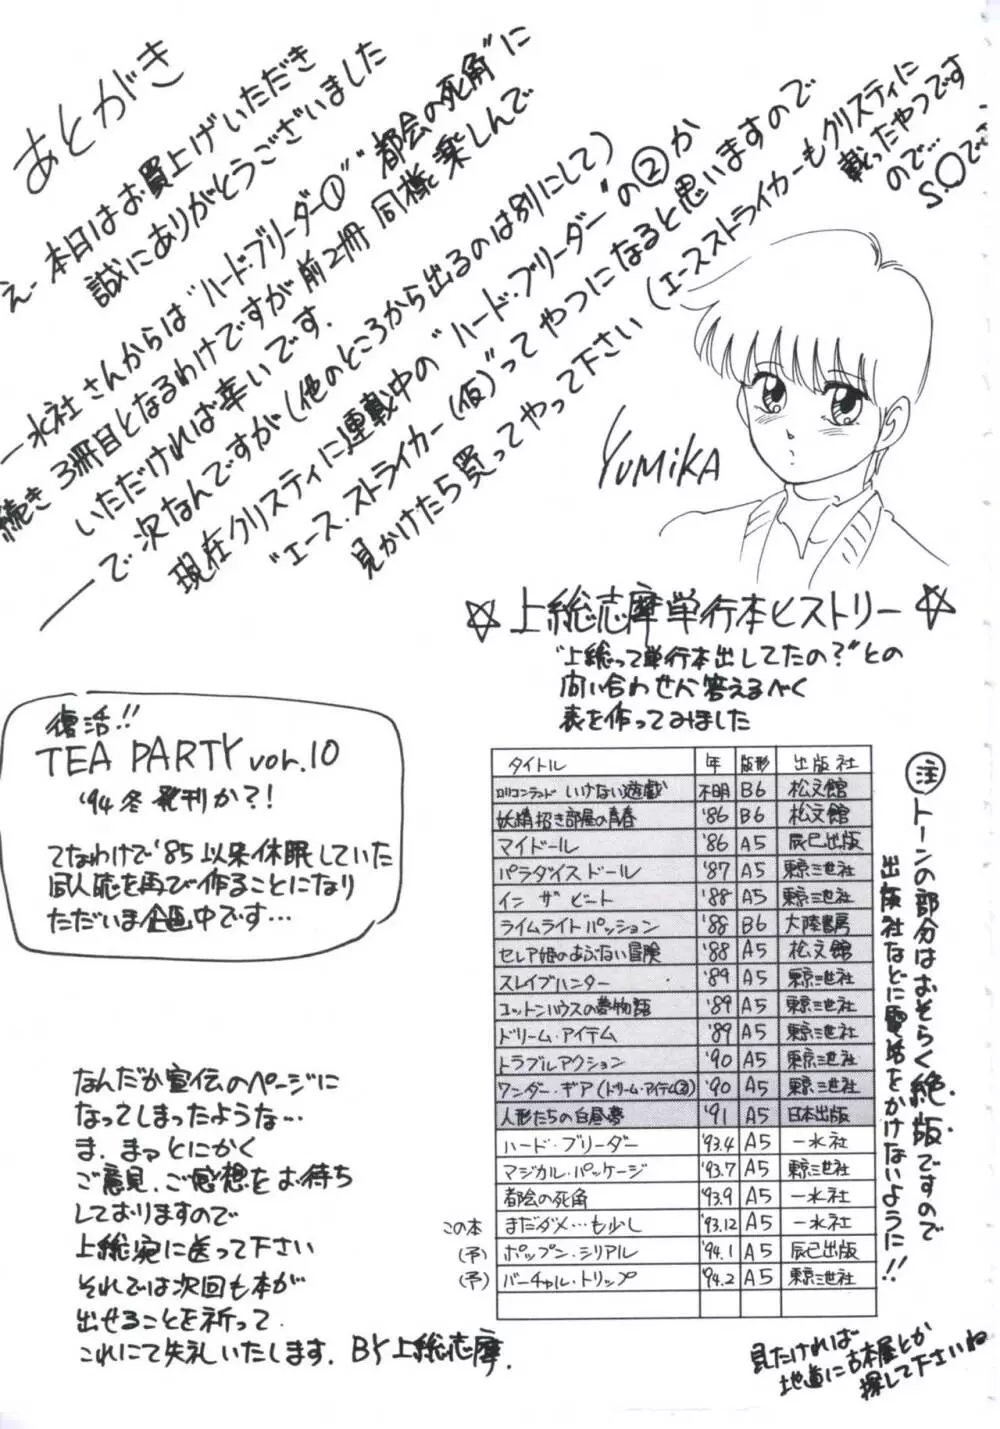 あとがき
えー本日はお買上げいただき
誠にありがとうございました
一水社さんからは"ハード・ブリーダー①""都会の死角"に
続き3冊目となるわけですが前2冊同様楽しんで
いただければ幸いです.
で次なんですが(他のところから出るのは別にして)
現在クリスティに連載中の"ハード・ブリーダー"の②か
"エース.ストライカー(仮)"ってやつになると思いますので
見かけたら買ってやって下さい(エースストライカーもクリスティに
載ったやつです
ので…
S.O.で
YUMiKA
☆上総志摩単行本ヒストリー☆
"上総って単行本出してたの?"との
問い合わせに答えるべく
表を作ってみました
復活!!
TEA PARTY vol.10
'94冬発刊か?!
てなわけで'85以来休眠していた
同人誌を再び作ることになり
ただいま企画中です…
タイトル 年 版形 出版社
ロリコンランド いけない遊戯 不明 B6 松文館
妖精招き部屋の青春 '86 B6 松文館
マイドール '86 A5 辰巳出版
パラダイスドール '87 A5 東京三世社
イン ザ ビート '88 A5 東京三世社
ライムライトパッション '88 B6 大陸書房
セレア姫のあぶない冒険 '88 A5 松文館
スレイブハンター '89 A5 東京三世社
コットンハウスの夢物語 '89 A5 東京三世社
ドリーム・アイテム '89 A5 東京三世社
トラブルアクション '90 A5 東京三世社
ワンダー・ギア(ドリーム・アイテム②) '90 A5 東京三世社
人形たちの白昼夢 '91 A5 日本出版
ハード・ブリーダー '93.4 A5 一水社
マジカル・パッケージ '93.7 A5 東京三世社
都会の死角 '93.9 A5 一水社
この本 まだダメ…も少し '93.12 A5 一水社
(予) ポップン・シリアル '94.1 A5 辰巳出版
(予) バーチャル・トリップ '94.2 A5 東京三世社
注 トーンの部分はおそらく絶版ですので
出版社などに電話をかけないように!!
なんだか宣伝のページに
なってしまったような…
ま.まっとにかく
ご意見、ご感想をお待ち
しておりますので
上総宛に送って下さい
それでは次回も本が
出せることを祈って.
これにて失礼いたします. BY上総志摩.
見たければ
地道に古本屋とか
探して下さいね